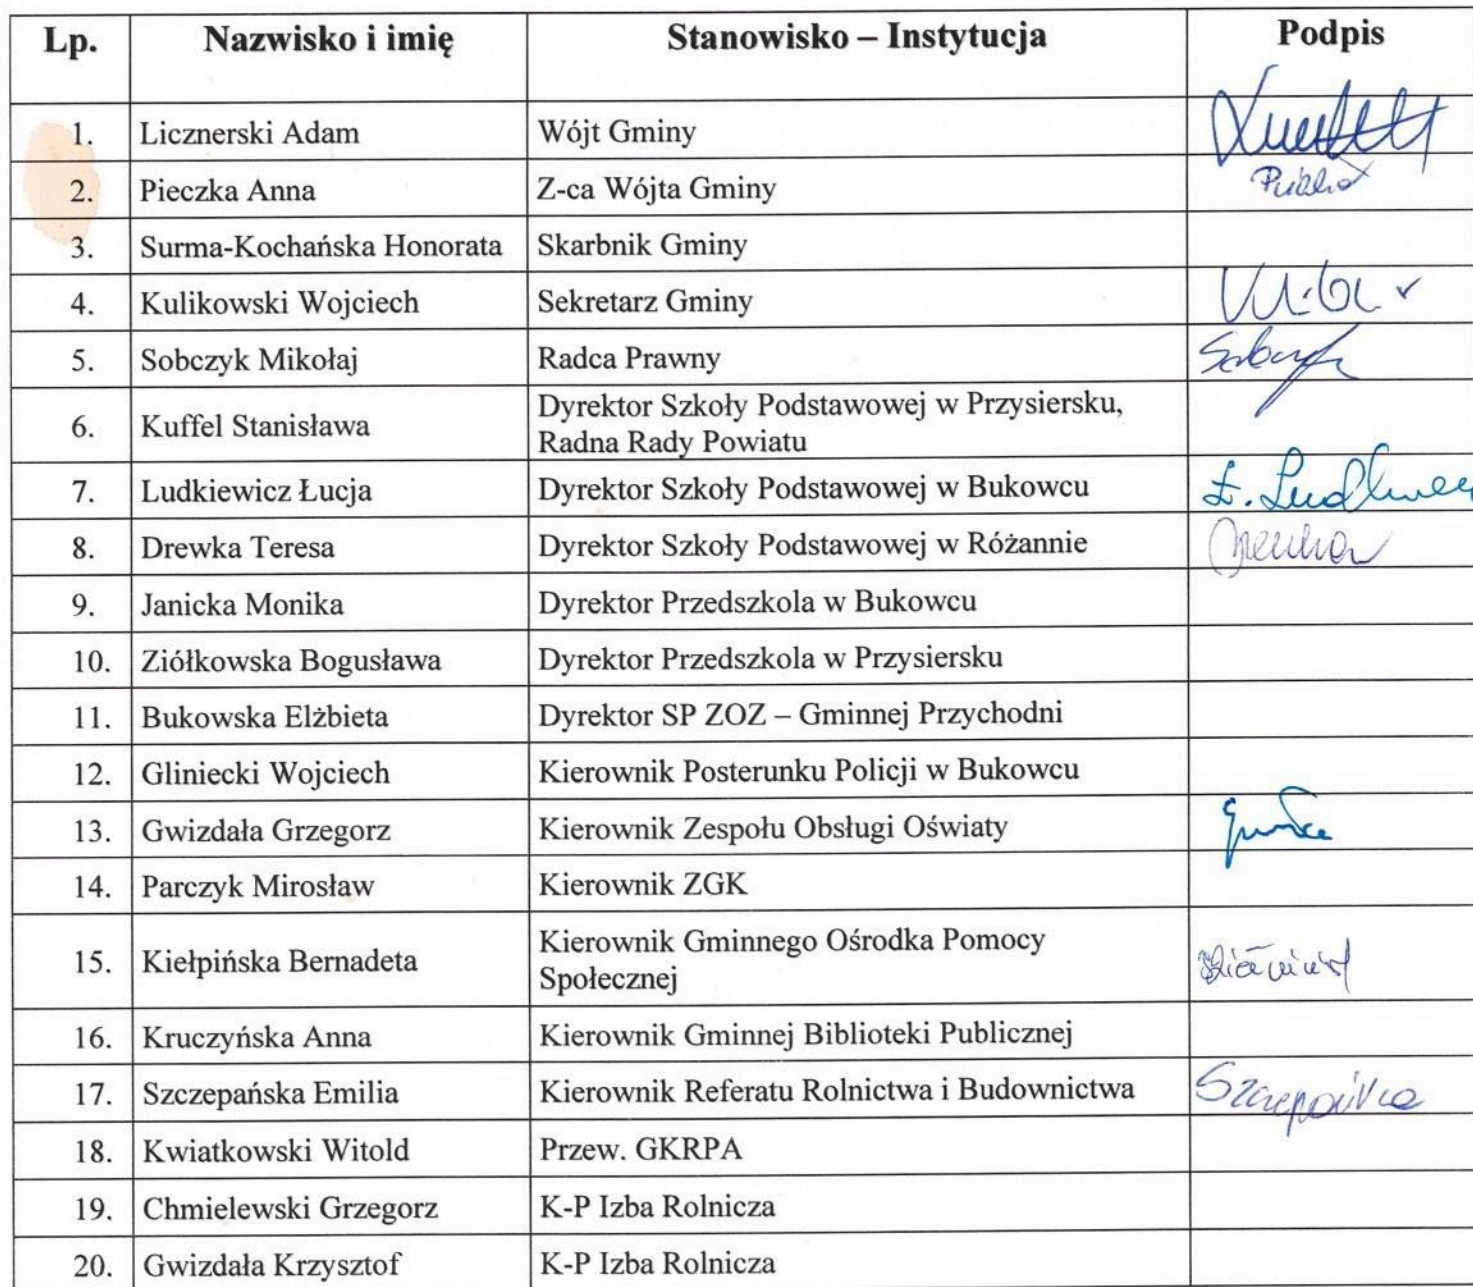 Lp. Nazwisko i imię Stanowisko – Instytucja Podpis
1. Licznerski Adam Wójt Gminy
2. Pieczka Anna Z-ca Wójta Gminy
3. Surma-Kochańska Honorata Skarbnik Gminy
4. Kulikowski Wojciech Sekretarz Gminy
5. Sobczyk Mikołaj Radca Prawny
6. Kuffel Stanisława Dyrektor Szkoły Podstawowej w Przysiersku,
Radna Rady Powiatu
7. Ludkiewicz Łucja Dyrektor Szkoły Podstawowej w Bukowcu
8. Drewka Teresa Dyrektor Szkoły Podstawowej w Różannie
9. Janicka Monika Dyrektor Przedszkola w Bukowcu
10. Ziółkowska Bogusława Dyrektor Przedszkola w Przysiersku
11. Bukowska Elżbieta Dyrektor SP ZOZ – Gminnej Przychodni
12. Gliniecki Wojciech Kierownik Posterunku Policji w Bukowcu
13. Gwizdała Grzegorz Kierownik Zespołu Obsługi Oświaty
14. Parczyk Mirosław Kierownik ZGK
15. Kiełpińska Bernadeta Kierownik Gminnego Ośrodka Pomocy
Społecznej
16. Kruczyńska Anna Kierownik Gminnej Biblioteki Publicznej
17. Szczepańska Emilia Kierownik Referatu Rolnictwa i Budownictwa
18. Kwiatkowski Witold Przew. GKRPA
19. Chmielewski Grzegorz K-P Izba Rolnicza
20. Gwizdała Krzysztof K-P Izba Rolnicza